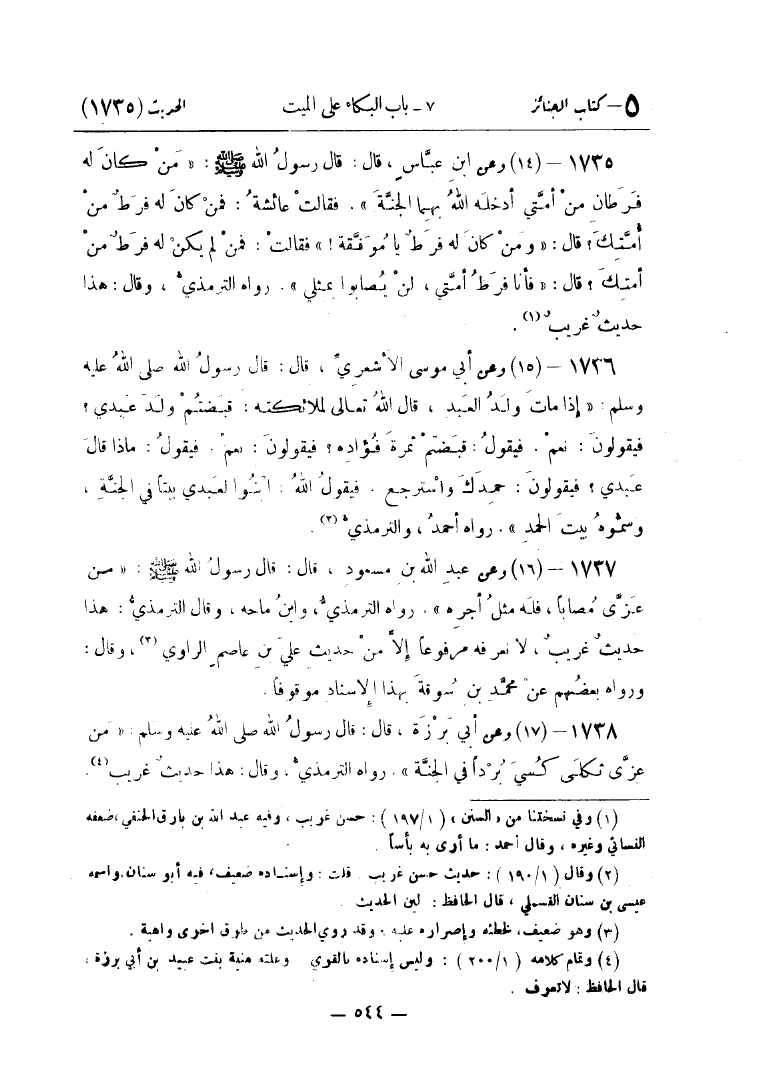 ٥ – كتاب الجنائز ٧ – باب البكاء على الميت الحديث (١٧٣٥)
١٧٣٥ – (١٤) وعن ابنِ عبَّاسٍ ، قال : قال رسولُ الله ﷺ : « مَنْ كانَ له
فَرَطان منْ أمَّتي أدخلَه اللهُ بهما الجنَّةَ » . فقالتْ عائشةُ : فمنْ كانَ له فرَطٌ منْ
أُمَّتِكَ ؟ قال : « ومَنْ كانَ له فرَطٌ يا مُوَفَّقة ! » فقالتْ : فمنْ لم يكنْ له فرَطٌ منْ
أمتِكَ ؟ قال : « فأنا فرَطُ أمَّتي ، لنْ يُصابوا بمثلي » . رواه الترمذيُّ ، وقال : هذا
حديثٌ غريبٌ (١) .
١٧٣٦ – (١٥) وعن أبي موسى الأشعريِّ ، قال : قال رسولُ الله صلى اللهُ عليه
وسلم : « إذا ماتَ ولَدُ العبدِ ، قال اللهُ تعالى لملائكتِه : قبَضتُمْ ولَدَ عبدي ؟
فيقولونَ : نعمْ . فيقولُ : قبَضتمْ ثمرةَ فُؤادِه ؟ فيقولونَ : نعمْ . فيقولُ : ماذا قالَ
عبدي ؟ فيقولونَ : حمِدَكَ واسْترجع . فيقولُ اللهُ : ابْنُوا لعبدي بيتاً في الجنَّةِ ،
وسَمُّوهُ بيتَ الحمدِ » . رواه أحمدُ ، والترمذيُّ (٢) .
١٧٣٧ – (١٦) وعن عبدِ اللهِ بنِ مسعودٍ ، قال : قال رسولُ اللهِ ﷺ : « مَن
عزَّى مُصاباً ، فلَه مثلُ أجرِه » . رواه الترمذيُّ ، وابنُ ماجه ، وقال الترمذيُّ : هذا
حديثٌ غريبٌ ، لا نعرفه مرفوعاً إلاَّ منْ حديثِ عليِّ بنِ عاصمٍ الراوي (٣) ، وقال :
ورواه بعضُهم عنْ محمَّدِ بنِ سُوقةَ بهذا الإِسنادِ موقوفاً .
١٧٣٨ – (١٧) وعن أبي بَرْزَةَ ، قال : قال رسولُ اللهِ صلى اللهُ عليه وسلم : « مَن
عزَّى ثكلَى كُسيَ بُرْداً في الجنَّةِ » . رواه الترمذيُّ ، وقال : هذا حديثٌ غريبٌ (٤) .
(١) وفي نسختنا من « السنن » ( ١٩٧/١ ) : حسن غريب ، وفيه عبد الله بن بارق الحنفي ، ضعفه
النسائي وغيره ، وقال أحمد : ما أرى به بأساً .
(٢) وقال ( ١٩٠/١ ) : حديث حسن غريب . قلت : وإسناده ضعيف ، فيه أبو سنان ، واسمه
عيسى بن سنان القسملي ، قال الحافظ : لين الحديث .
(٣) وهو ضعيف ، لخطئه وإصراره عليه . وقد روي الحديث من طرق اخرى واهية .
(٤) وتمام كلامه ( ٢٠٠/١ ) : وليس إسناده بالقوي . وعلته منية بنت عبيد بن أبي برزة ،
قال الحافظ : لا تعرف .
– ٥٤٤ –